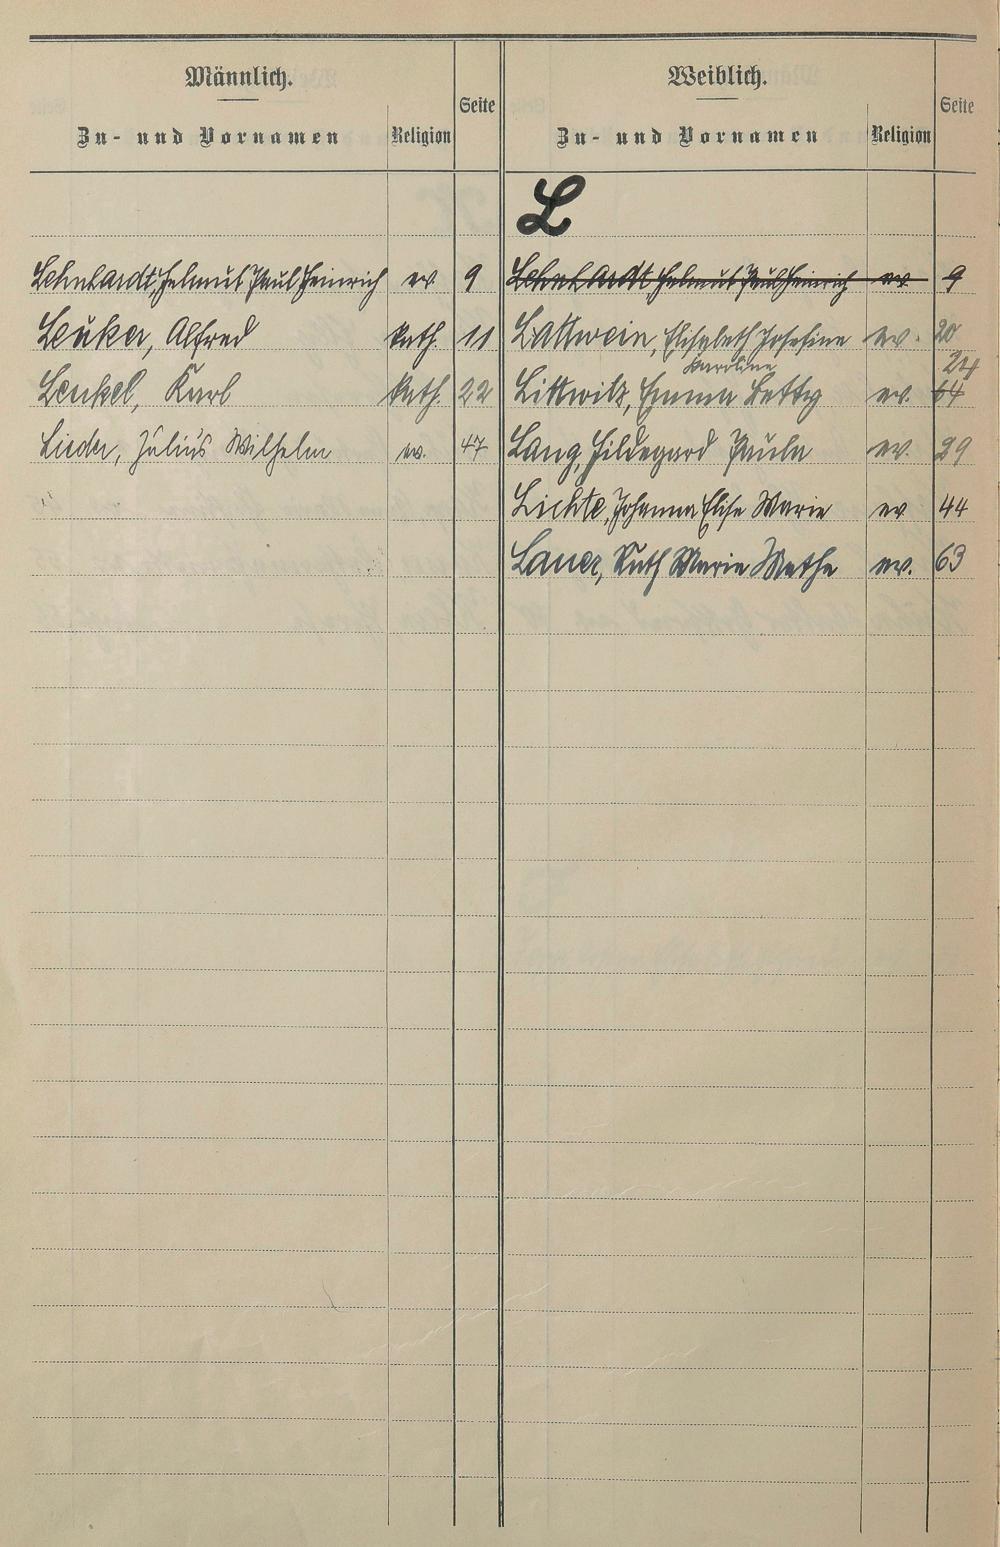 Männlich. Weiblich.
Zu- und Vornamen Religion Seite Zu- und Vornamen Religion Seite
L
Lehnhardt, Helmut Paul Heinrich ev. 9 Lehnhardt, Helmut Paul Heinrich ev. 9
Leuker, Alfred kath. 11 Lattwein, Elisabeth Josefine ev. 20
Karoline 24
Lenkel, Karl kath. 22 Littwitz, Emma Betty ev. 64
Lieder, Julius Wilhelm ev. 47 Lang, Hildegard Paula ev. 29
Lichte, Johanna Elise Marie ev. 44
Lauer, Ruth Marie Marthe ev. 63